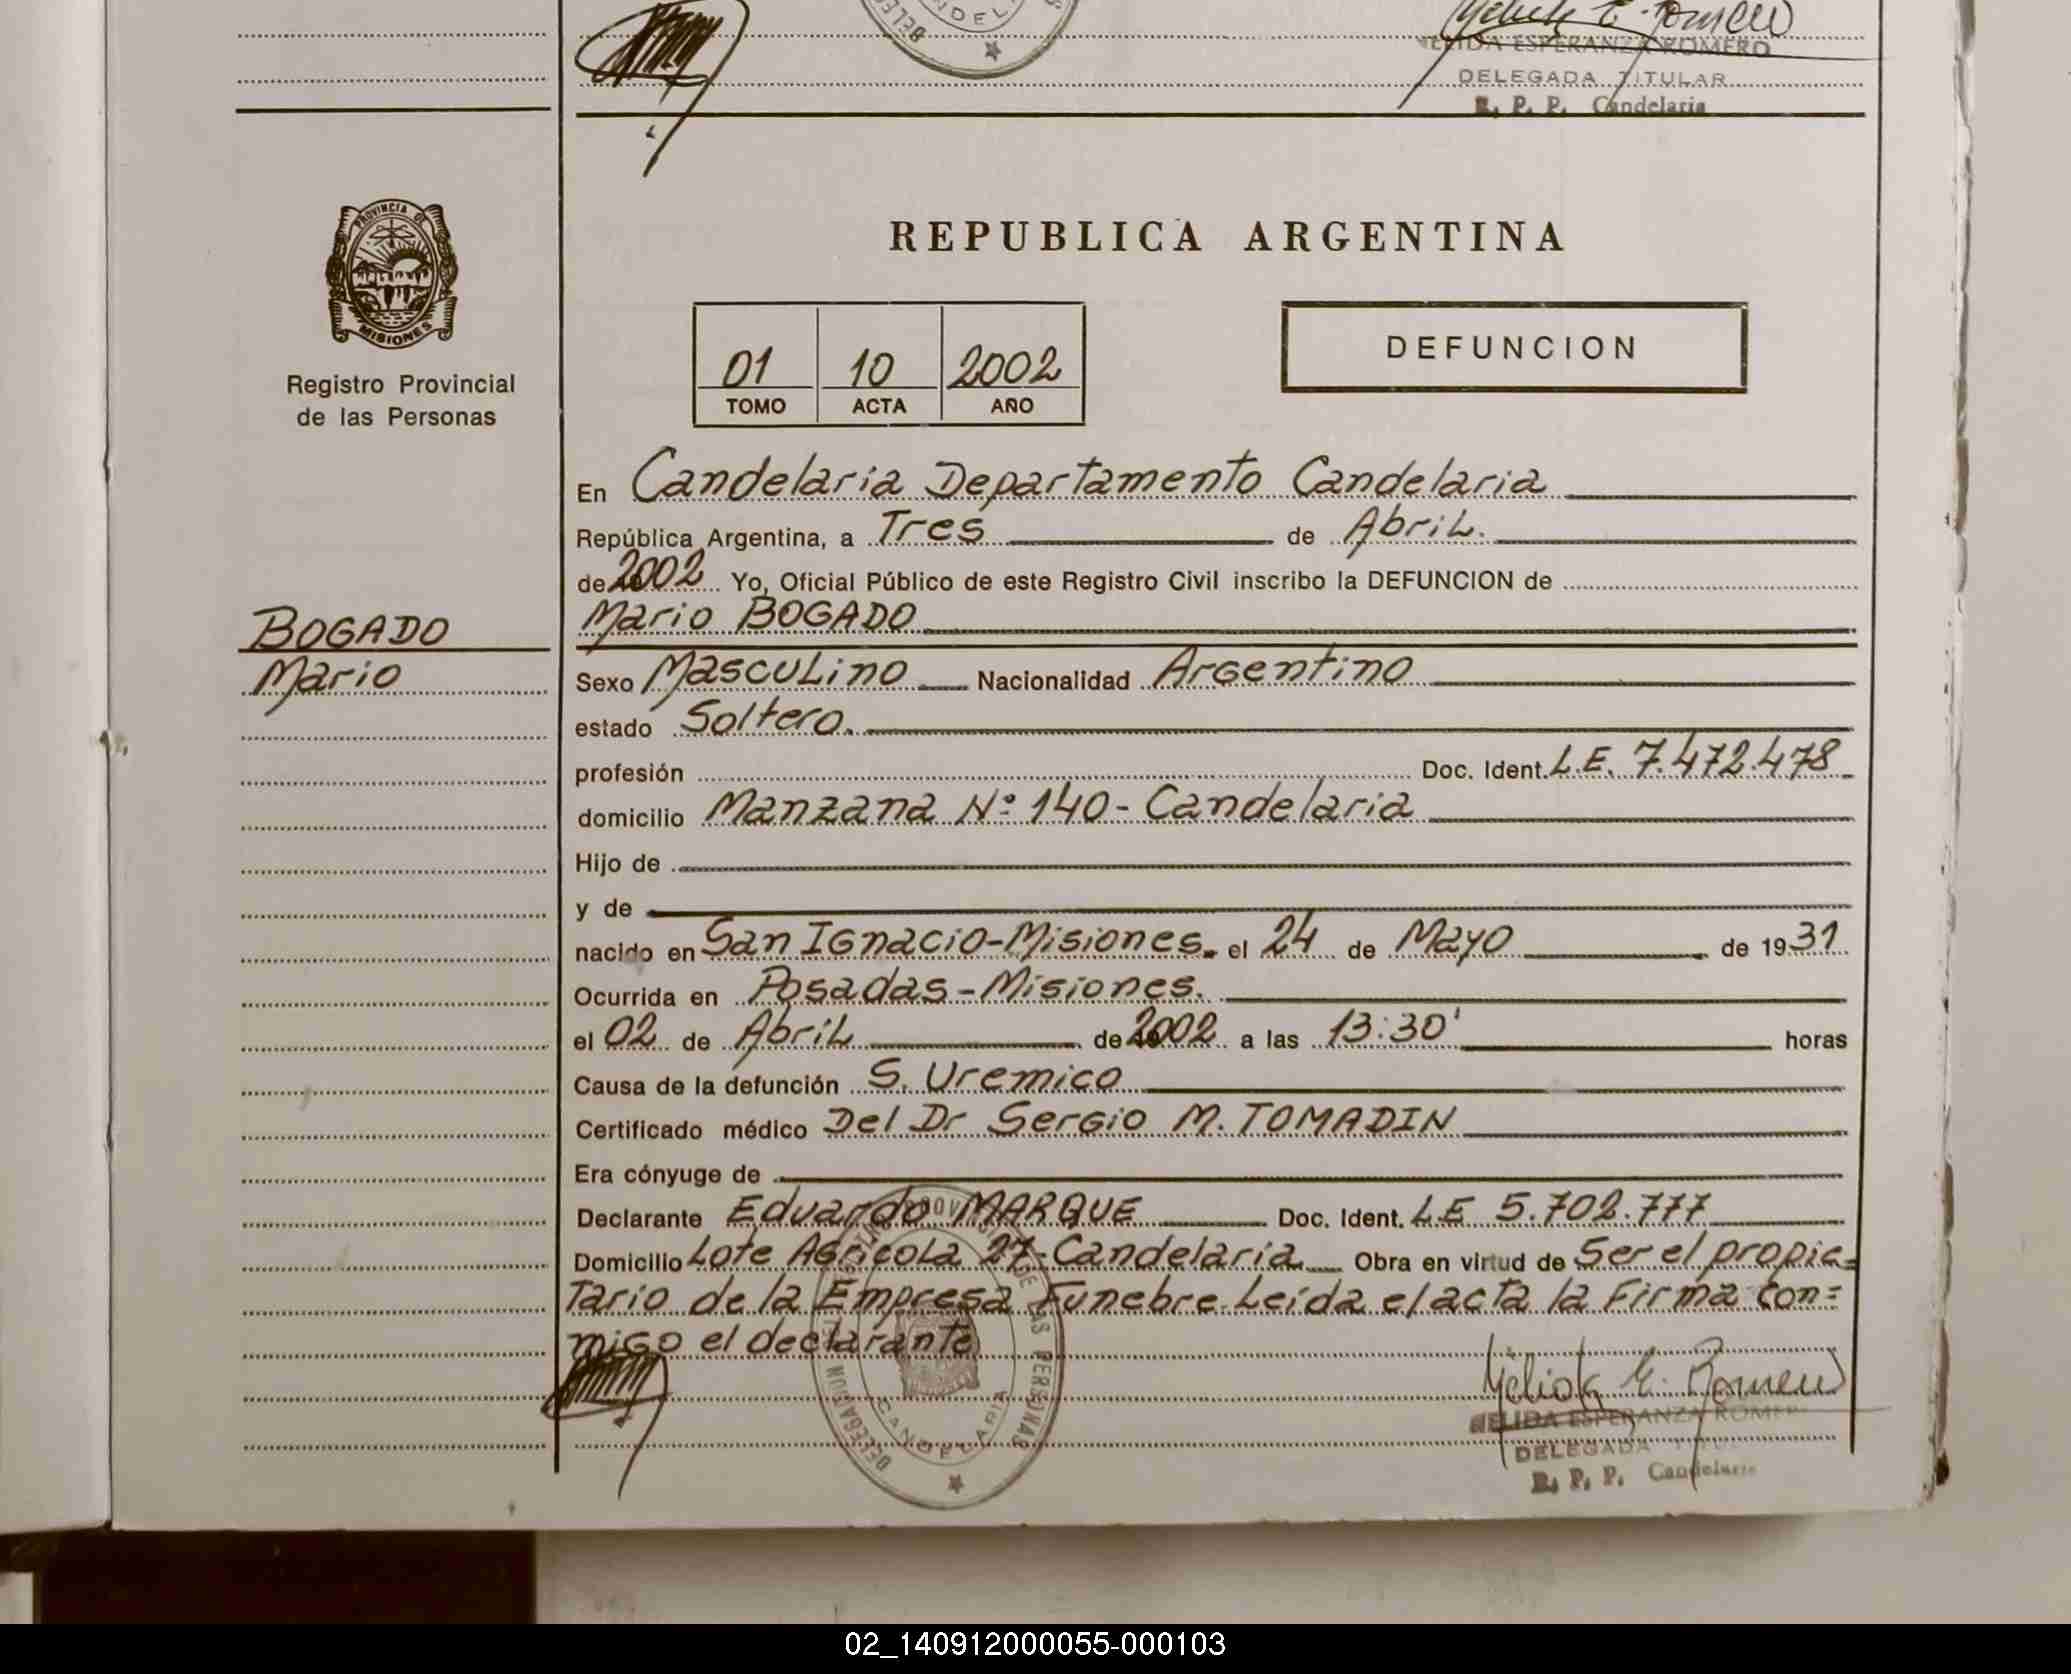 NELIDA ESPERANZA ROMERO
DELEGADA TITULAR
R. P. P. Candelaria
PROVINCIA DE
MISIONES
Registro Provincial
de las Personas
REPUBLICA ARGENTINA
01 10 2002
TOMO ACTA AÑO
DEFUNCION
En Candelaria Departamento Candelaria
República Argentina, a Tres de Abril.
de 2002 Yo, Oficial Público de este Registro Civil inscribo la DEFUNCION de
BOGADO
Mario
Mario BOGADO
Sexo Masculino Nacionalidad Argentino
estado Soltero.
profesión Doc. Ident. L.E. 7.472.478
domicilio Manzana Nº 140 - Candelaria
Hijo de
y de
nacido en San Ignacio - Misiones. el 24 de Mayo de 1931
Ocurrida en Posadas - Misiones.
el 02 de Abril de 2002 a las 13:30' horas
Causa de la defunción S. Uremico
Certificado médico Del Dr Sergio M. TOMADIN
Era cónyuge de
Declarante Eduardo MARQUE Doc. Ident. LE 5.702.777
Domicilio Lote Agricola 27 - Candelaria Obra en virtud de Ser el propie=
Tario de la Empresa Funebre. Leída el acta la Firma con=
migo el declarante
DELEGACION CANDELARIA
DE LAS PERSONAS
NELIDA ESPERANZA ROMERO
DELEGADA TITULAR
R. P. P. Candelaria
02_140912000055-000103